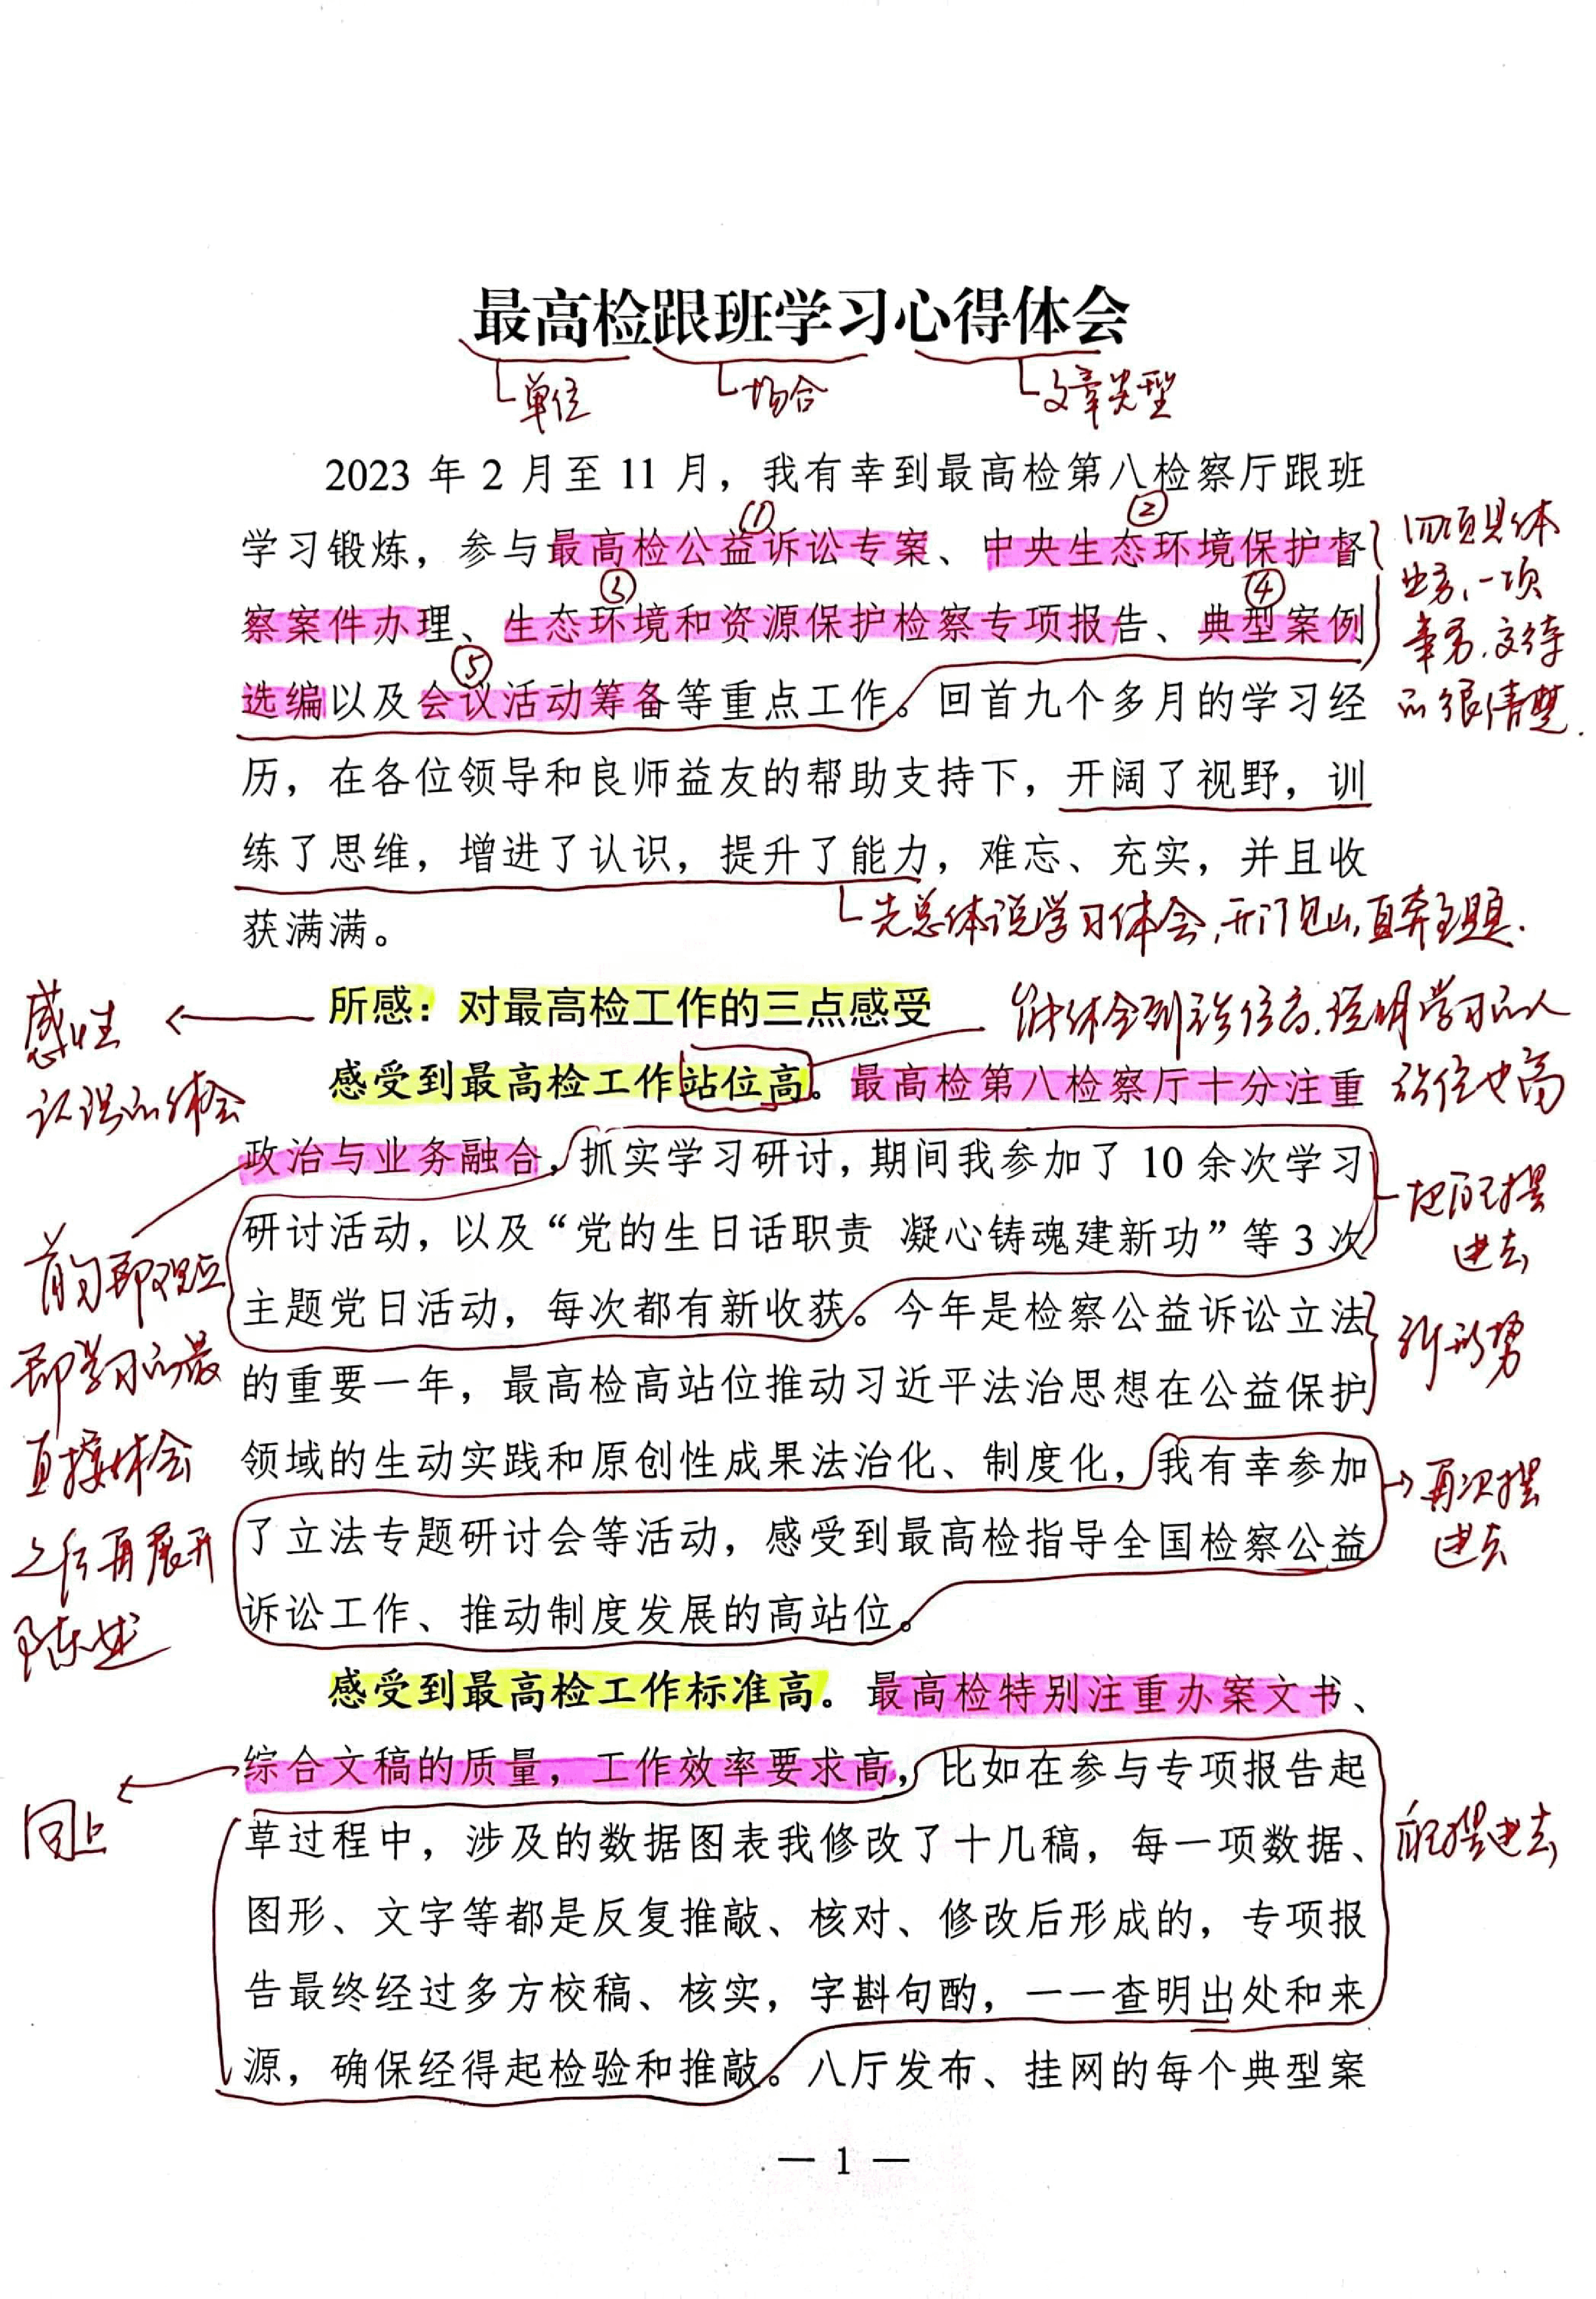 最高检跟班学习心得体会
单位 场合 文章类型
2023 年 2 月至 11 月，我有幸到最高检第八检察厅跟班
① ②
学习锻炼，参与最高检公益诉讼专案、中央生态环境保护督
③ ④
察案件办理、生态环境和资源保护检察专项报告、典型案例
⑤
选编以及会议活动筹备等重点工作。回首九个多月的学习经
四项具体
业务，一项
事务，交待
的很清楚.
历，在各位领导和良师益友的帮助支持下，开阔了视野，训
练了思维，增进了认识，提升了能力，难忘、充实，并且收
获满满。
先总体说学习体会，开门见山，直奔主题.
所感：对最高检工作的三点感受
感性
认识的体会
感受到最高检工作站位高。最高检第八检察厅十分注重
能体会到站位高，说明学习的人
站位也高
政治与业务融合，抓实学习研讨，期间我参加了 10 余次学习
研讨活动，以及“党的生日话职责 凝心铸魂建新功”等 3 次
主题党日活动，每次都有新收获。今年是检察公益诉讼立法
把自己摆
进去
首句即观点
即学习的最
直接体会
之后再展开
陈述
的重要一年，最高检高站位推动习近平法治思想在公益保护
新形势
领域的生动实践和原创性成果法治化、制度化，我有幸参加
了立法专题研讨会等活动，感受到最高检指导全国检察公益
诉讼工作、推动制度发展的高站位。
再次摆
进去
感受到最高检工作标准高。最高检特别注重办案文书、
综合文稿的质量，工作效率要求高，比如在参与专项报告起
同上
草过程中，涉及的数据图表我修改了十几稿，每一项数据、
自己摆进去
图形、文字等都是反复推敲、核对、修改后形成的，专项报
告最终经过多方校稿、核实，字斟句酌，一一查明出处和来
源，确保经得起检验和推敲。八厅发布、挂网的每个典型案
— 1 —